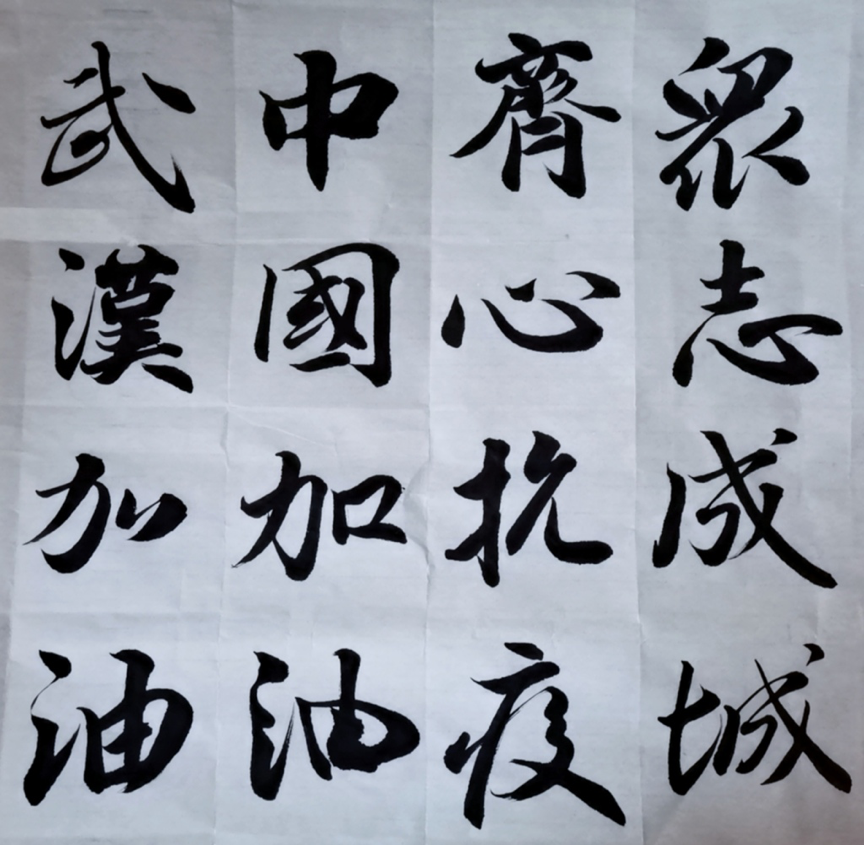 眾志成城
齊心抗疫
中國加油
武漢加油